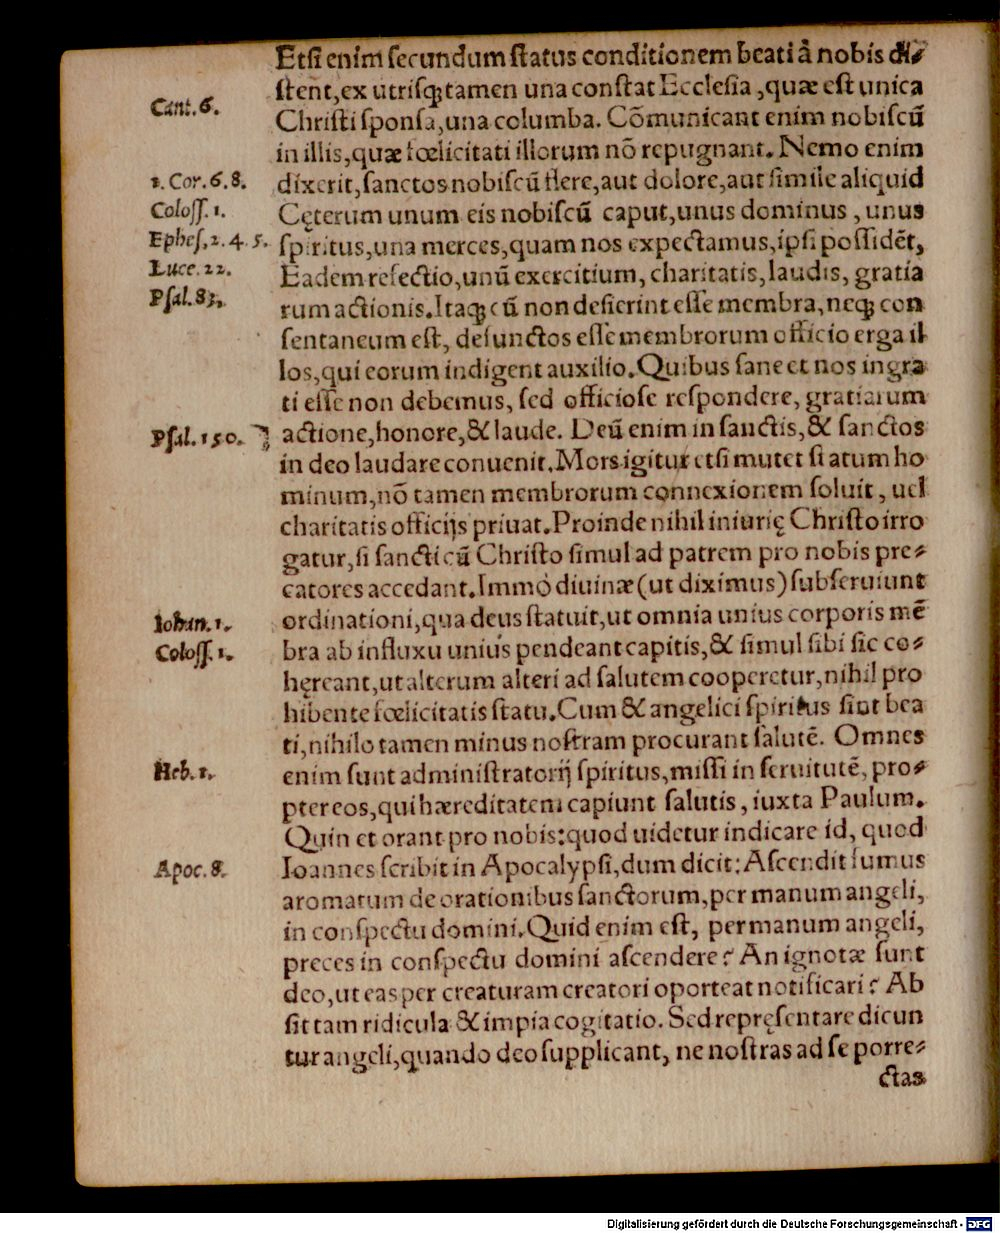 Etsi enim secundum status conditionem beati à nobis di⸗
stent, ex utrisq; tamen una constat Ecclesia, quæ est unica
Cant. 6.
Christi sponsa, una columba. Cõmunicant enim nobiscũ
in illis, quæ fœlicitati illorum nõ repugnant. Nemo enim
1. Cor. 6. 8.
dixerit, sanctos nobiscũ flere, aut dolore, aut simile aliquid
Coloss. 1.
Cęterum unum eis nobiscũ caput, unus dominus, unus
Ephes. 2. 4. 5.
spiritus, una merces, quam nos expectamus, ipsi possidẽt,
Luce. 22.
Eadem refectio, unũ exercitium, charitatis, laudis, gratia
Psal. 83.
rum actionis. Itaq; cũ non desierint esse membra, neq; con
sentaneum est, defunctos esse membrorum officio erga il
los, qui eorum indigent auxilio. Quibus sane et nos ingra
ti esse non debemus, sed officiose respondere, gratiarum
Psal. 150.
actione, honore, & laude. Deũ enim in sanctis, & sanctos
in deo laudare conuenit. Mors igitur etsi mutet statum ho
minum, nõ tamen membrorum connexionem soluit, uel
charitatis officijs priuat. Proinde nihil iniurię Christo irro
gatur, si sancti cũ Christo simul ad patrem pro nobis pre⸗
catores accedant. Immò diuinæ (ut diximus) subseruiunt
Iohan. 1.
ordinationi, qua deus statuit, ut omnia unius corporis mẽ
Coloss. 1.
bra ab influxu unius pendeant capitis, & simul sibi sic co⸗
hęreant, ut alterum alteri ad salutem cooperetur, nihil pro
hibente fœlicitatis statu. Cum & angelici spiritus sint bea
ti, nihilo tamen minus nostram procurant salutẽ. Omnes
Heb. 1.
enim sunt administratorij spiritus, missi in seruitutẽ, pro⸗
pter eos, qui hæreditatem capiunt salutis, iuxta Paulum.
Quin et orant pro nobis: quod uidetur indicare id, quod
Apoc. 8.
Ioannes scribit in Apocalypsi, dum dicit: Ascendit fumus
aromatum de orationibus sanctorum, per manum angeli,
in conspectu domini. Quid enim est, per manum angeli,
preces in conspectu domini ascendere? An ignotæ sunt
deo, ut eas per creaturam creatori oporteat notificari? Ab
sit tam ridicula & impia cogitatio. Sed repręsentare dicun
tur angeli, quando deo supplicant, ne nostras ad se porre⸗
ctas
Digitalisierung gefördert durch die Deutsche Forschungsgemeinschaft - DFG